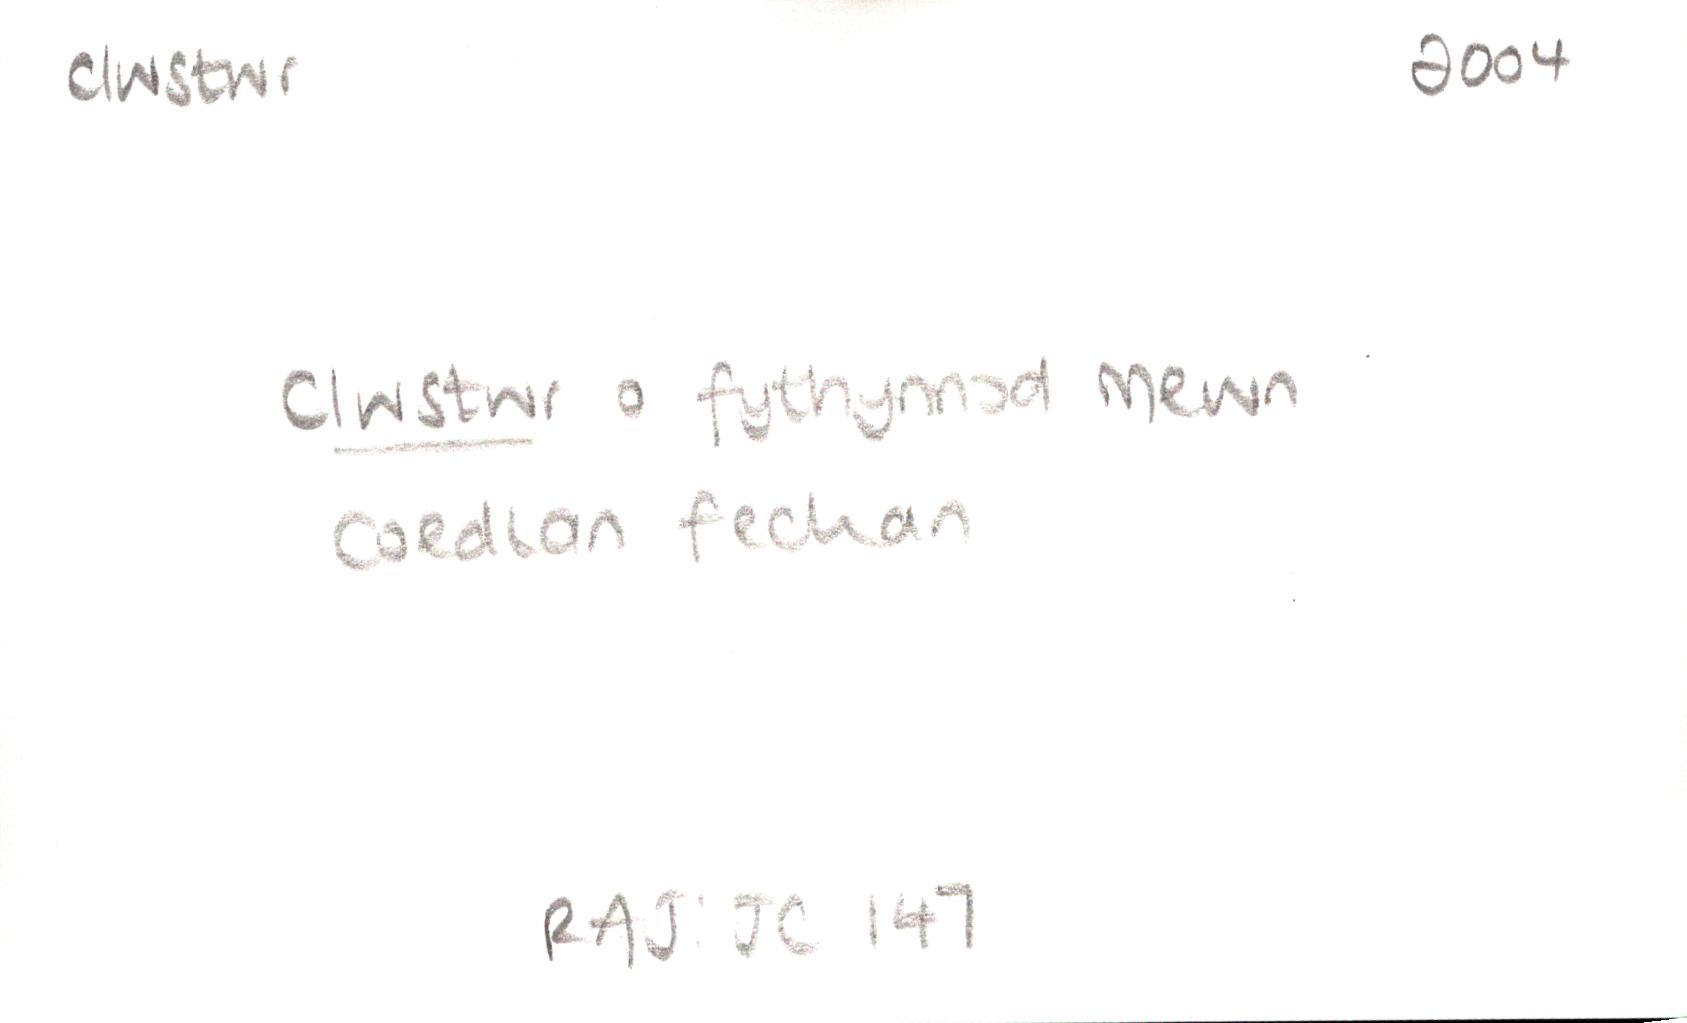 clwstwr 2004
Clwstwr o fythynnod mewn
coedlan fechan
RAJ: JC 147